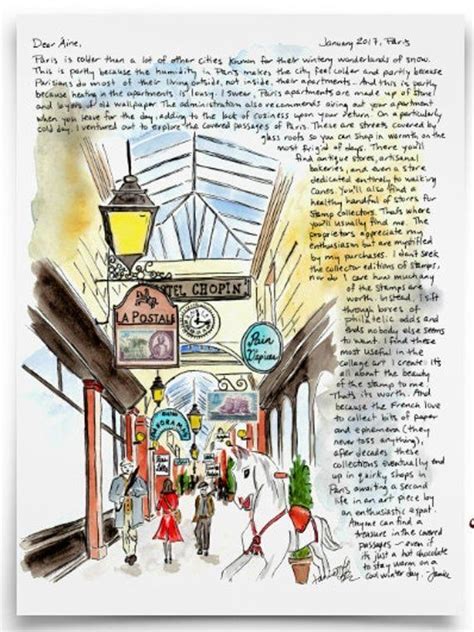 Dear Aine,
January 2017, Paris
Paris is colder than a lot of other cities known for their wintery wonderlands of snow.
This is partly because the humidity in Paris makes the city feel colder and partly because
Parisians do most of their living outside, not inside, their apartments. And this is partly
because heating in the apartments is lousy. I swear, Paris apartments are made up of stone
and layers of old wallpaper. The administration also recommends airing out your apartment
when you leave for the day, adding to the lack of coziness upon your return. On a particularly
cold day, I ventured out to explore the covered passages of Paris. These are streets covered by
glass roofs so you can shop in warmth on the
most frigid of days. There you'll
find antique stores, artisanal
bakeries, and even a store
dedicated entirely to walking
canes. You'll also find a
healthy handful of stores for
stamp collectors. That's where
you'll usually find me. The
proprietors appreciate my
enthusiasm but are mystified
by my purchases. I don't seek
the collector editions of stamps,
nor do I care how much any
of the stamps are
worth. Instead, I sift
through boxes of
philatelic odds and
ends nobody else seems
to want. I find these
most useful in the
collage art I create: it's
all about the beauty
of the stamp to me.
That's its worth. And
because the French love
to collect bits of paper
and ephemera (they
never toss anything),
after decades these
collections eventually end
up in quirky shops in
Paris awaiting a second
life in an art piece by
an enthusiastic expat.
Anyone can find a
treasure in the covered
passages – even if
it's just a hot chocolate
to stay warm on a
cool winter day. Janice
HOTEL CHOPIN
LA POSTALE
Pain
D'épices
PANORAMAS